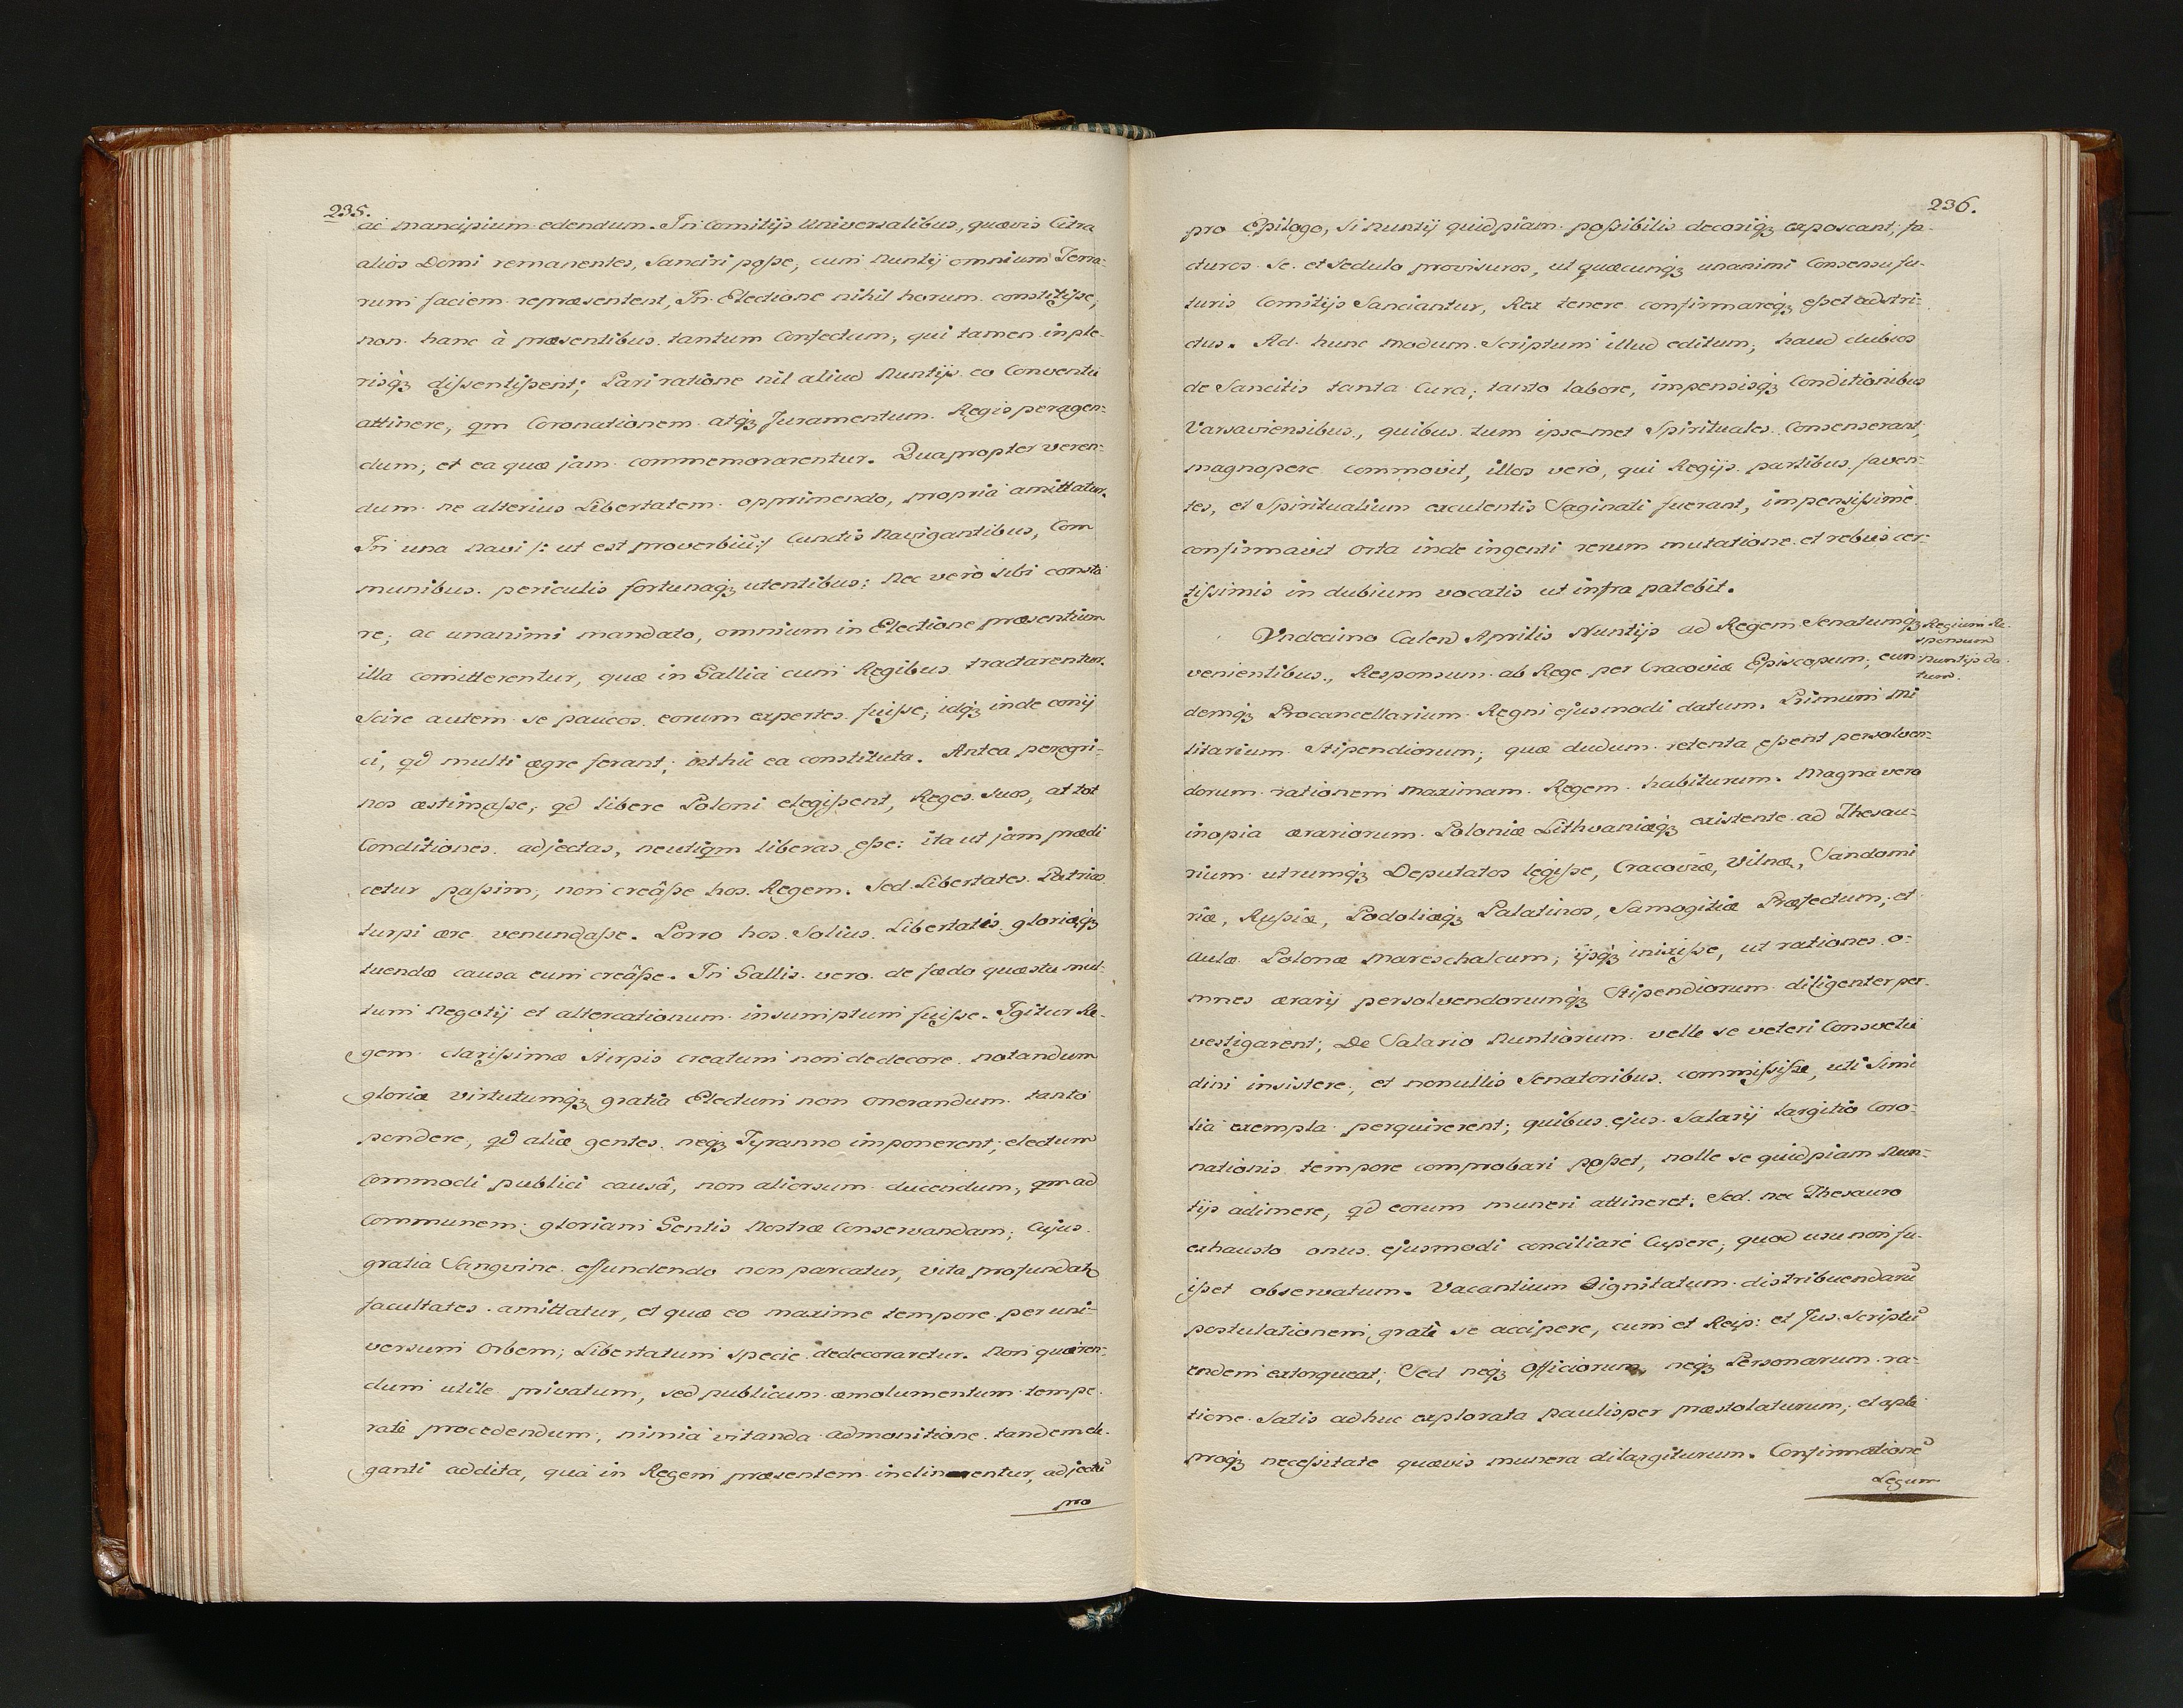 235.
ac mancipium edendum. In Comitijs Universalibus, quævis Citra
alios Domi remanentes, Sanciri poſse, cum Nuntij omnium Terra-
rum faciem repræsentent, In Electione nihil horum constitiſse,
non hanc à præsentibus tantum Confectum, qui tamen in ple-
risq3 diſsentiſsent; Pari ratione nil aliud Nuntijs eo Conventu
attinere, qm Coronationem atq3 Juramentum Regis peragen-
dum, et ea quæ jam commemorarentur. Quapropter veren-
dum ne alterius Libertatem opprimendo, propria amittatur.
In una Navi /: ut est proverbiũ :/ Cunctis Navigantibus, Com
munibus periculis fortunaq3 utentibus; Nec verò sibi consta
re, ac unanimi mandato, omnium in Electione præsentium
illa comitterentur, quæ in Gallia cum Regibus tractarentur.
Scire autem se paucos eorum expertes fuiſse, idq3 inde conij
ci, qd multi ægre ferant, isthic ea constituta. Antea peregri-
nos æstimaſse, qd libere Poloni elegiſsent, Reges Suos, at tot
Conditiones adjectas, neutiqm liberas eſse: ita ut jam prædi
cetur paſsim, non creâſse hos Regem. Sed Libertates Patrias
turpi ære venundaſse. Porro hos Solius Libertatis gloriæq3
tuendæ causa eum creâſse. In Gallis vero de fædo quæstu mul-
tum Negotij et altercationum insumptum fuiſse. Igitur Re-
gem clariſsimæ Stirpis creatum non dedecore notandum
gloriæ virtutumq3 gratia Electum non onerandum tanto
pondere, qd aliæ gentes neq3 Tyranno imponerent, electum
Commodi publici causâ, non aliorsum ducendum, qm ad
Communem gloriam Gentis Nostræ Conservandam; Cujus
gratia Sangvine effundendo non parcatur, vita profundatr
facultates amittatur, et quæ eo maxime tempore per uni-
versum Orbem, Libertatum specie dedecoraretur. Non quæren-
dum utile privatum, sed publicum æmolumentum tempe-
ratè procedendum, nimia vitanda admonitione tandem ele-
ganti addita, qua in Regem præsentem inclinarentur, adjectũ
pro
236.
pro Epilogo, Si Nuntij quidpiam poſsibilis decoriq3 exposcant, fa-
cturos Se et Sedulo provisuros, ut quæcunq3 unanimi Consensu fu-
turis Comitijs Sanciantur, Rex tenere confirmareq3 eſset adstri-
ctus. Ad hunc modum Scriptum illud editum, haud dubios
de Sancitis tanta Cura, tanto labore, impensisq3 Conditionibus
Varsaviensibus, quibus tum ipse-met Spirituales Consenserant,
magnopere commovit, illos verò, qui Regijs partibus faven-
tes, et Spiritualium exculentis Saginati fuerant, impensiſsimè
confirmavit orta inde ingenti rerum mutatione et rebus cer-
tiſsimis in dubium vocatis ut infra patebit.
Vndecimo Calend Aprilis Nuntijs ad Regem Senatumq3
Regium Re-
sponsum
nuntijs da-
tum.
venientibus, Responsum ab Rege per Cracoviæ Episcopum, eun-
demq3 Procancellarium Regni ejusmodi datum. Primum Mi
litarium Stipendiorum, quæ dudum retenta eſsent persolven-
dorum rationem Maximam Regem habiturum. Magna vero
inopia ærariorum Poloniæ Lithvaniæq3 existente ad Thesau-
rium utrumq3 Deputatos legiſse, Cracoviæ, Vilnæ, Sandomi
riæ, Ruſsiæ, Podoliæq3 Palatinos, Samogitiæ Præfectum, et
aulæ Polonæ Mareschalcum, ijsq3 iniuxiſse, ut rationes o-
mnes ærarij persolvendorumq3 Stipendiorum diligenter per-
vestigarent; De Salario Nuntiorum velle se veteri Consvetu
dini insistere, et nonullis Senatoribus commiſsiſse, uti Simi
lia exempla perquirerent; quibus ejus Salarij largitio Coro-
nationis tempore comprobari poſset, nolle se quidpiam Nun-
tijs adimere, qd eorum muneri attineret. Sed nec Thesauro
exhausto onus ejusmodi conciliare Cupere, quod usu non fu-
iſset observatum. Vacantium Dignitatum distribuendarũ
postulationem gratè se accipere, cum et Reip: et Jus Scriptũ
endem extorqueat; Sed neq3 Officiorum neq3 Personarum ra-
tione Satis adhuc explorata paulisper præstolaturum, et aptè
proq3 neceſsitate quævis munera dilargiturum. Confirmationẽ
Legum